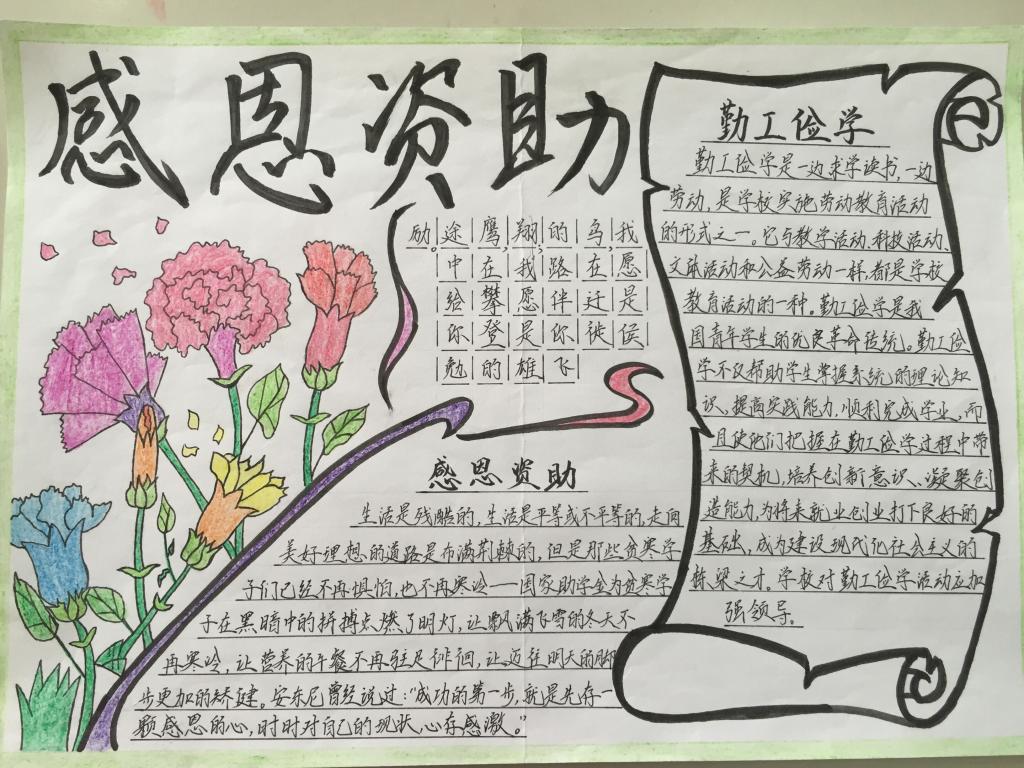 感恩资助
我愿是候
鸟,在迁徙
的路伴你飞
翔;我愿是雄
鹰在攀登的
途中给你勉
励。
感恩资助
生活是残酷的,生活是平等或不平等的,走向
美好理想的道路是布满荆棘的,但是那些贫寒学
子们已经不再惧怕,也不再寒冷——国家助学金为贫寒学
子在黑暗中的拼搏点燃了明灯,让飘满飞雪的冬天不
再寒冷,让营养的午餐不再驻足徘徊,让迈往明天的脚
步更加的矫健。安东尼曾经说过:“成功的第一步,就是先存一
颗感恩的心,时时对自己的现状心存感激。”
勤工俭学
勤工俭学是一边求学读书,一边
劳动,是学校实施劳动教育活动
的形式之一。它与教学活动、科技活动、
文献活动和公益劳动一样,都是学校
教育活动的一种。勤工俭学是我
国青年学生的优良革命传统。勤工俭
学不仅帮助学生掌握系统的理论知
识、提高实践能力,顺利完成学业,而
且使他们把握在勤工俭学过程中带
来的契机,培养创新意识、凝聚创
造能力,为将来就业创业打下良好的
基础,成为建设现代化社会主义的
栋梁之才。学校对勤工俭学活动应加
强领导。